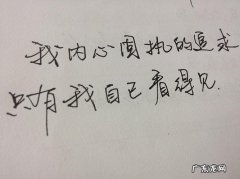 我内心固执的追求
只有我自己看得见.
广东龙网